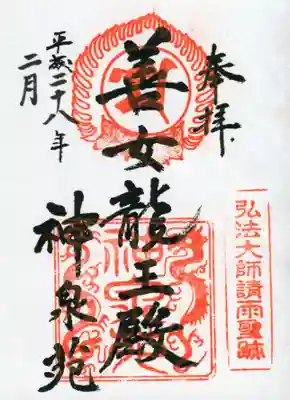 奉拝
弘法大師請雨聖跡
善女龍王殿
神泉苑
平成二十八年
二月